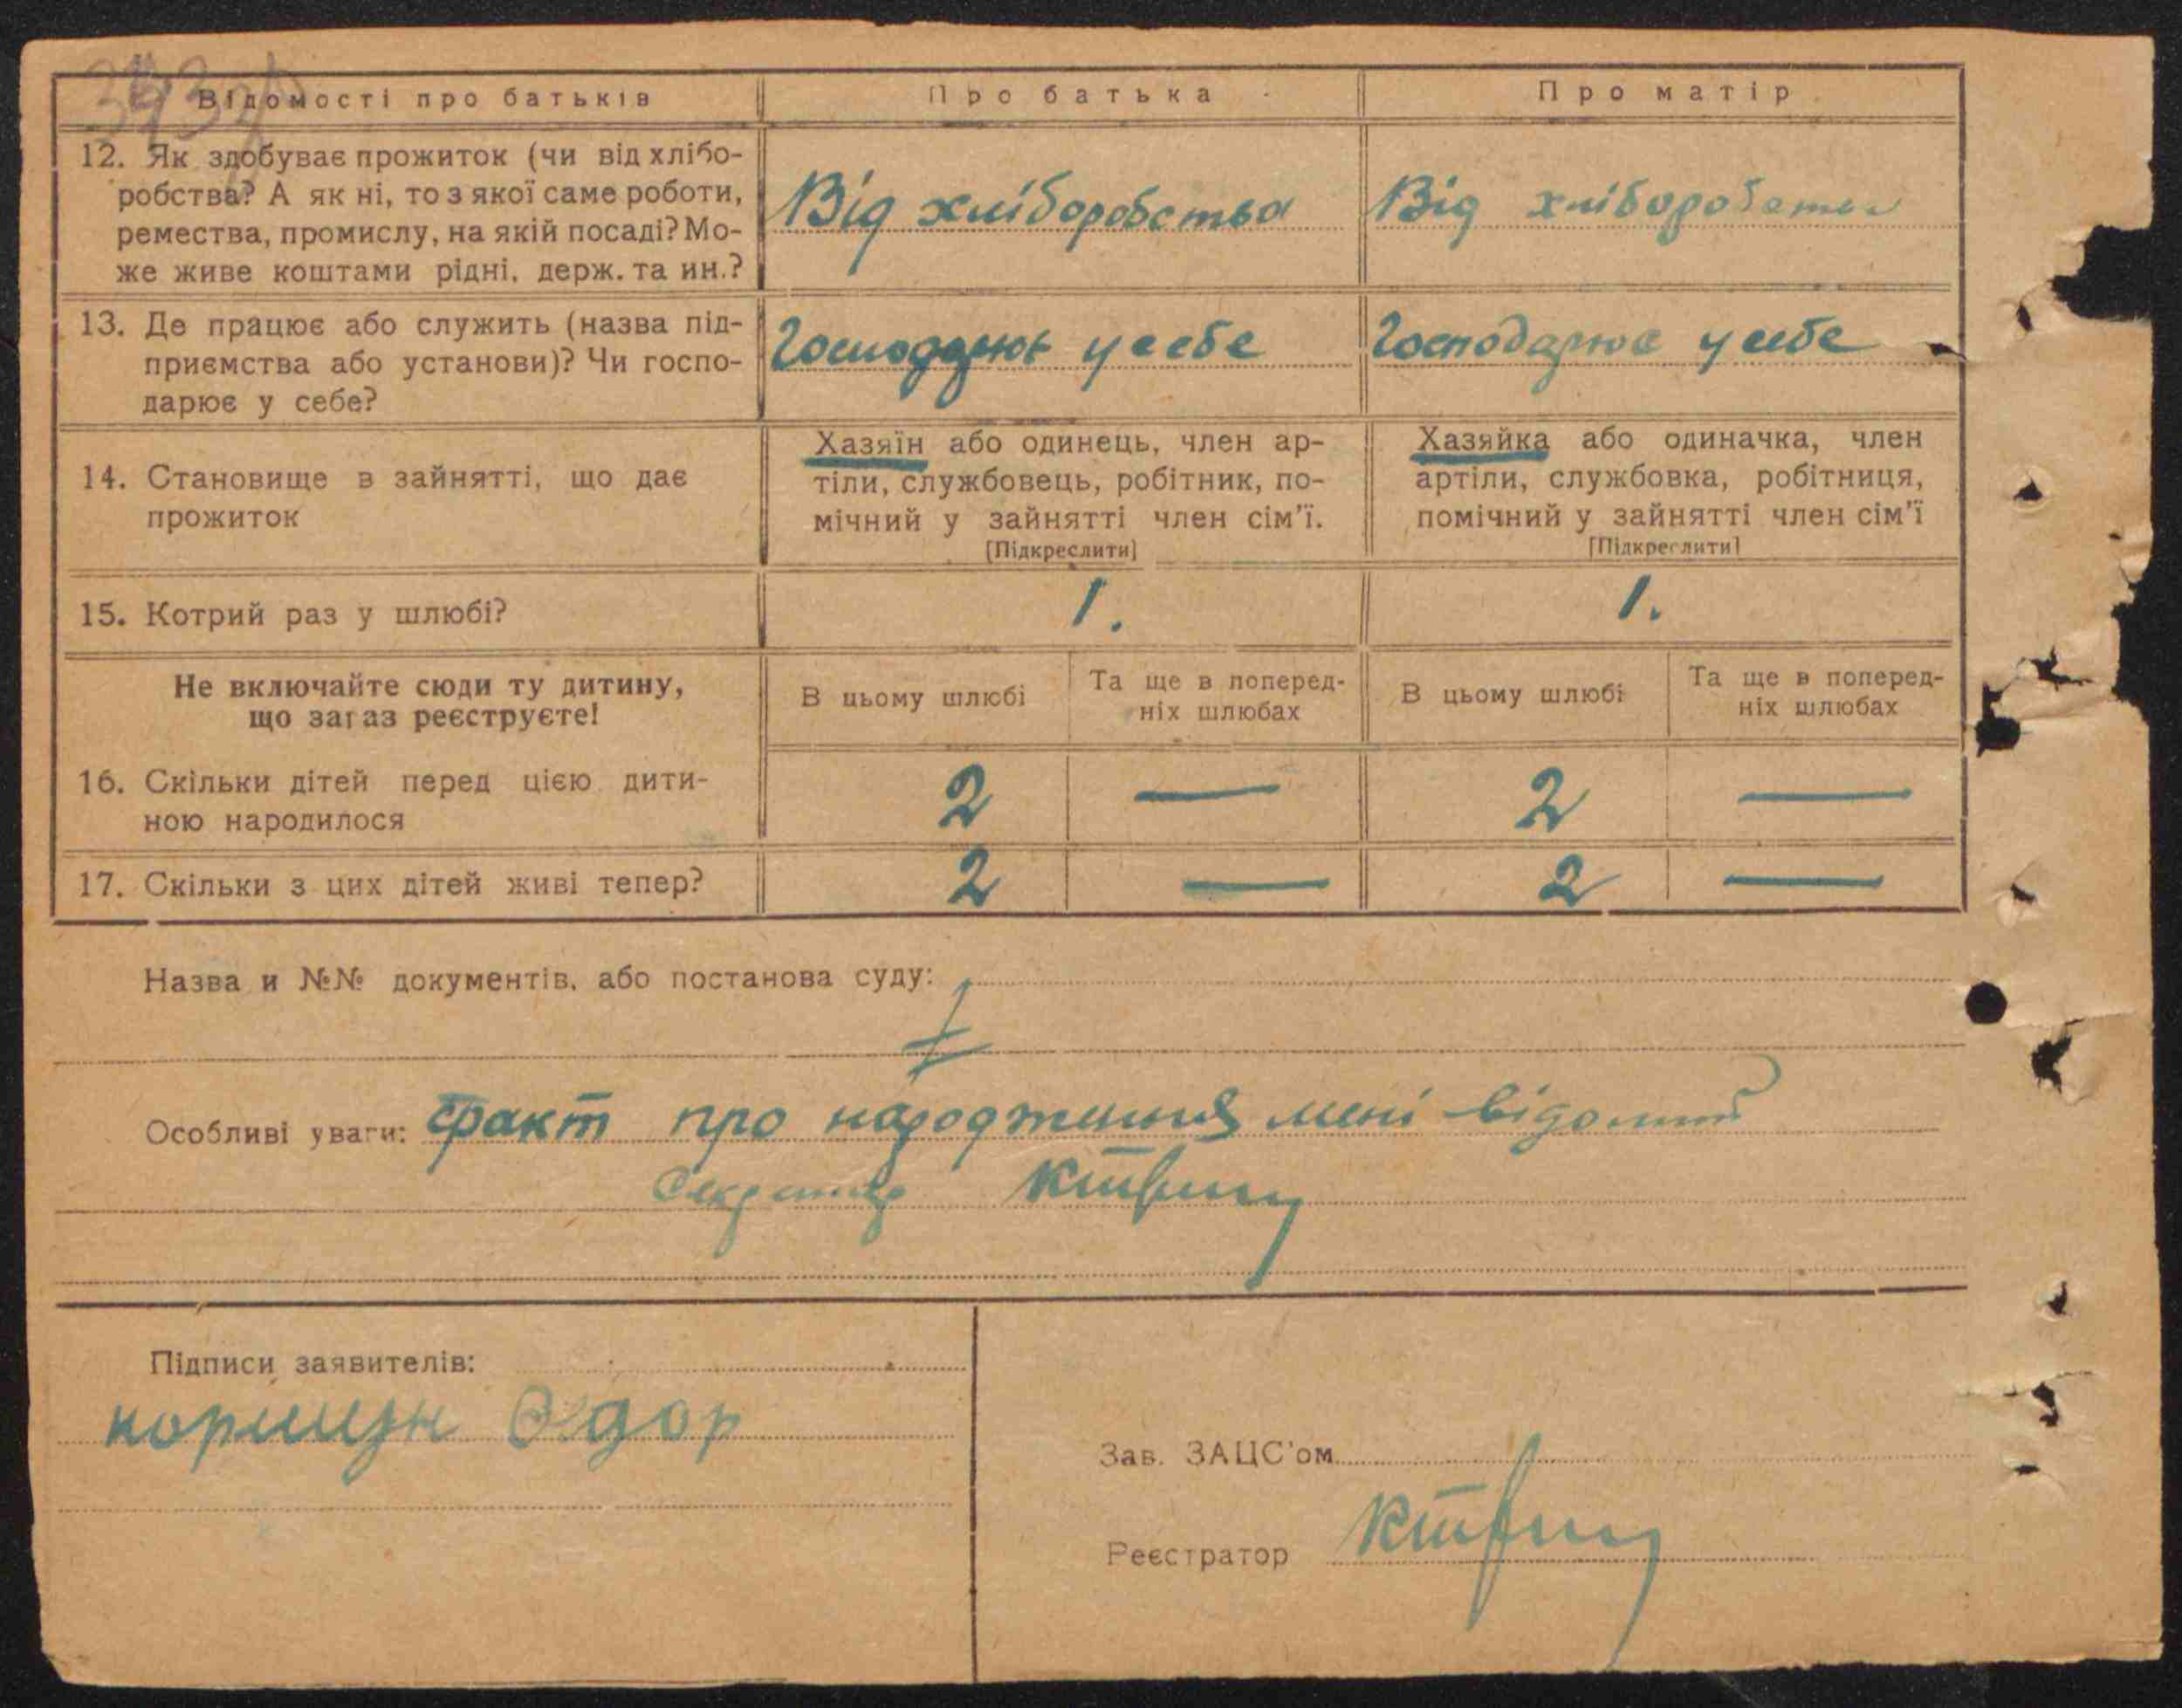 Відомості про батьків
Про батька
Про матір
12. Як здобуває прожиток (чи від хлібо-
робства? А як ні, то з якої саме роботи,
ремества, промислу, на якій посаді? Мо-
же живе коштами рідні, держ. та ин.?
Від хліборобства
Від хліборобства
13. Де працює або служить (назва під-
приємства або установи)? Чи госпо-
дарює у себе?
Господарює у себе
Господарює у себе
14. Становище в зайнятті, що дає
прожиток
Хазяїн або одинець, член ар-
тіли, службовець, робітник, по-
мічний у зайнятті член сім'ї.
[Підкреслити]
Хазяйка або одиначка, член
артіли, службовка, робітниця,
помічний у зайнятті член сім'ї
[Підкреслити]
15. Котрий раз у шлюбі?
1.
1.
Не включайте сюди ту дитину,
що зараз реєструєте!
В цьому шлюбі
Та ще в поперед-
ніх шлюбах
В цьому шлюбі
Та ще в поперед-
ніх шлюбах
16. Скільки дітей перед цією дити-
ною народилося
2
—
2
—
17. Скільки з цих дітей живі тепер?
2
—
2
—
Назва и №№ документів, або постанова суду:
Особливі уваги: Факт про народження мені відомий
Секретар
Підписи заявителів:
Зав. ЗАЦС'ом
Реєстратор